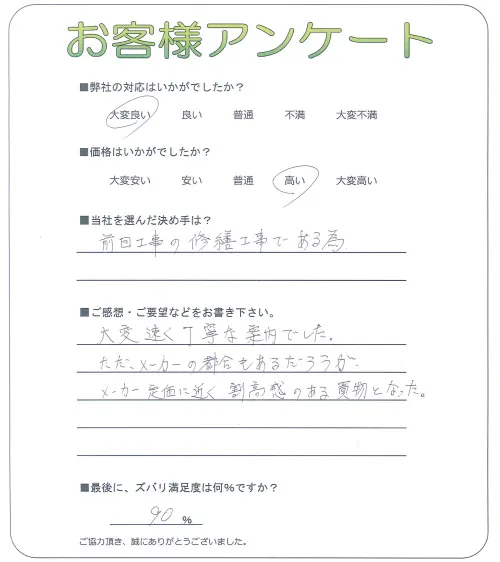 お客様アンケート
■弊社の対応はいかがでしたか？
大変良い 良い 普通 不満 大変不満
■価格はいかがでしたか？
大変安い 安い 普通 高い 大変高い
■当社を選んだ決め手は？
前回工事の修繕工事である為
■ご感想・ご要望などをお書き下さい。
大変速く丁寧な案内でした。
ただ、メーカーの都合もあるだろうが、
メーカー定価に近く割高感のある買物となった。
■最後に、ズバリ満足度は何％ですか？
90 ％
ご協力頂き、誠にありがとうございました。